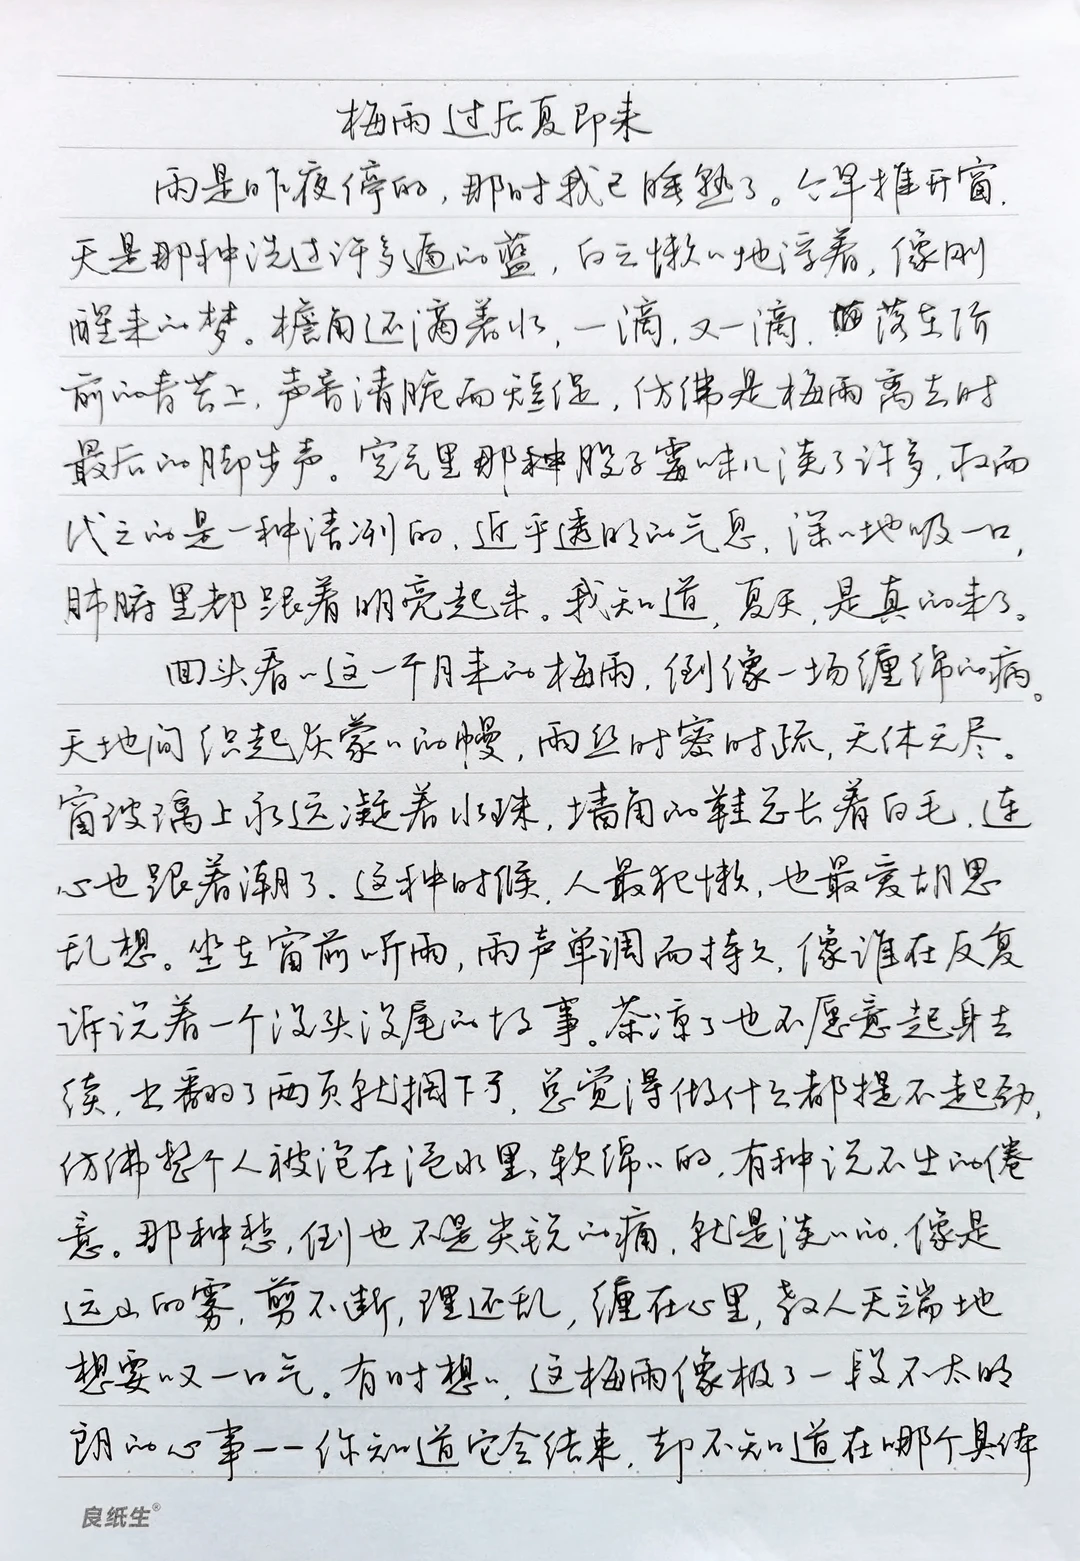 梅雨过后夏即来
雨是昨夜停的，那时我已睡熟了。今早推开窗，
天是那种洗过许多遍的蓝，白云懒懒地浮着，像刚
醒来的梦。檐角还滴着水，一滴，又一滴，落在阶
前的青苔上，声音清脆而短促，仿佛是梅雨离去时
最后的脚步声。空气里那种股子霉味儿淡了许多，取而
代之的是一种清冽的、近乎透明的气息，深深地吸一口，
肺腑里都跟着明亮起来。我知道，夏天，是真的来了。
回头看看这一个月来的梅雨，倒像一场缠绵的病。
天地间织起灰蒙蒙的幔，雨丝时密时疏，无休无尽。
窗玻璃上永远凝着水珠，墙角的鞋总长着白毛，连
心也跟着潮了。这种时候，人最犯懒，也最爱胡思
乱想。坐在窗前听雨，雨声单调而持久，像谁在反复
诉说着一个没头没尾的故事。茶凉了也不愿意起身去
续，书翻了两页就搁下了，总觉得做什么都提不起劲，
仿佛整个人被泡在温水里、软绵绵的，有种说不出的倦
意。那种愁，倒也不是尖锐的痛，就是淡淡的，像是
远山的雾，剪不断，理还乱，缠在心里，教人无端地
想要叹一口气。有时想想，这梅雨像极了一段不太明
朗的心事——你知道它会结束，却不知道在哪个具体
良纸生®